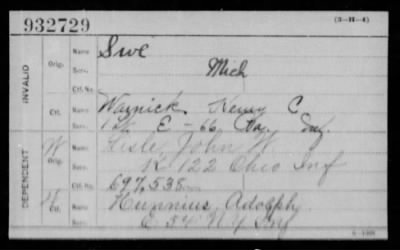 932729
(3-H-4)
INVALID
Orig.
Name Swe
Serv. Mich
Ctf. No.
Ctf.
Name Warnick Henry C
Serv. 1 Lt. E - 66 Inf
DEPENDENT
W Orig.
Name Lesle, John W
Serv. K 122 Ohio Inf
Ctf. No. 697,538
Ctf.
Name Hunnius, Adolph
Serv. E 54 NY Inf